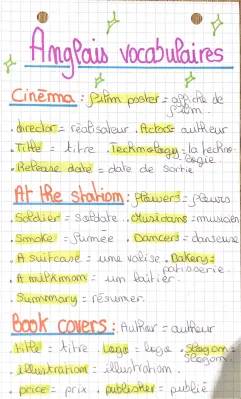 Anglais vocabulaires
Cinéma : film poster = affiche de
film.
. director = réalisateur . Actors = autheur
. Title = titre . Technology = la techno-
logie
. Release date = date de sortie
At the station : flowers = fleurs
. Soldier = soldate . Musicians = musicien
. Smoke = fumée . Dancers = danseuse
. A suitcase = une valise . Bakery =
patisserie.
. A milkmam = un laitier.
. Summary = résumer.
Book covers : Author = autheur
. title = titre . Logo = logo . Slogan =
slogan.
. illustration = illustration.
. price = prix . publisher = publié